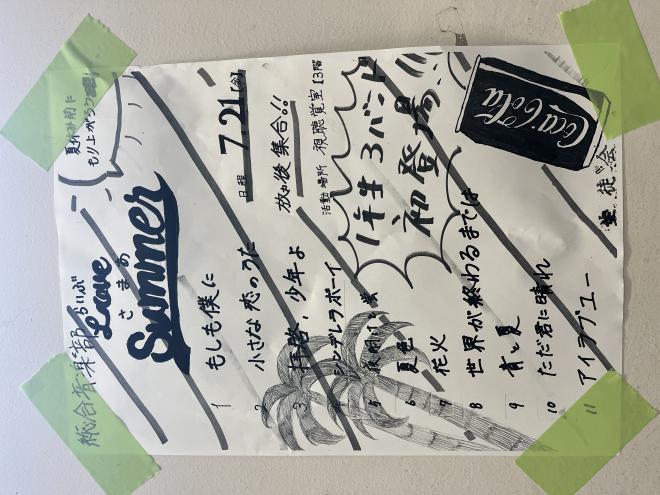 夏休み前に
もり上がろう
総合音楽部 らいぶ
Love
さまぁ
Summer
日程 7.21(金)
放か後集合!!
活動場所 視聴覚室 13階
1年生3バンド
初登場!!!
1 もしも僕に
2 小さな恋のうた
3 拝啓、少年よ
4 シンデレラボーイ
5
6 夏色
7 花火
8 世界が終わるまでは
9 青と夏
10 ただ君に晴れ
11 アイラブユー
Coca-Cola
徒会